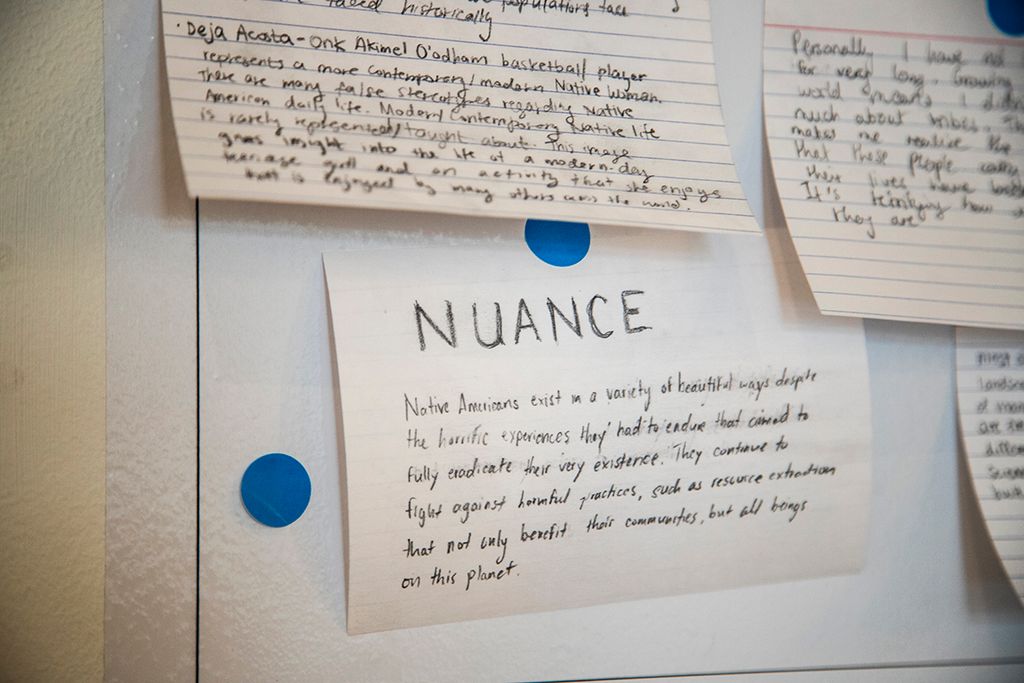 populations face
faced historically
· Deja Acosta - Onk Akimel O'odham basketball player
represents a more contemporary/modern Native Woman.
There are many false stereotypes regarding Native
American daily life. Modern/Contemporary Native life
is rarely represented/taught about. This image
gives insight into the life of a modern-day
teenage girl and an activity that she enjoys
that is enjoyed by many others across the world.
Personally I have not
for very long. Growing
world I didn
much about tribes.
makes me realize
that these people
their lives have
It's how
they are
NUANCE
Native Americans exist in a variety of beautiful ways despite
the horrific experiences they' had to endure that aimed to
fully eradicate their very existence. They continue to
fight against harmful practices, such as resource extraction
that not only benefit their communities, but all beings
on this planet.
most